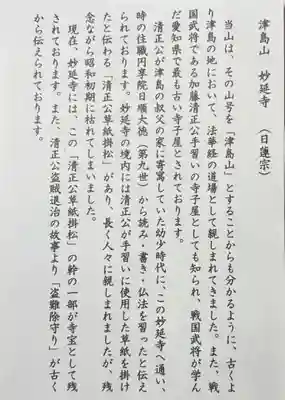 津島山　妙延寺　（日蓮宗）
当山は、その山号を「津島山」とすることからも分かるように、古くよ
り津島の地において、法華経の道場として親しまれてきました。また、戦
国武将である加藤清正公手習いの寺子屋としても知られ、戦国武将が学ん
だ愛知県で最も古い寺子屋とされております。
清正公が津島の叔父の家に寄寓していた幼少時代に、この妙延寺へ通い、
時の住職円享院日順大徳（第九世）から読み・書き・仏法を習ったと伝え
られております。妙延寺の境内には清正公が手習いに使用した草紙を掛け
たと伝わる「清正公草紙掛松」があり、長く人々に親しまれましたが、残
念ながら昭和初期に枯れてしまいました。
現在、妙延寺には、この「清正公草紙掛松」の幹の一部が寺宝として残
されております。また、清正公盗賊退治の故事より「盗難除守り」が古く
から伝えられております。